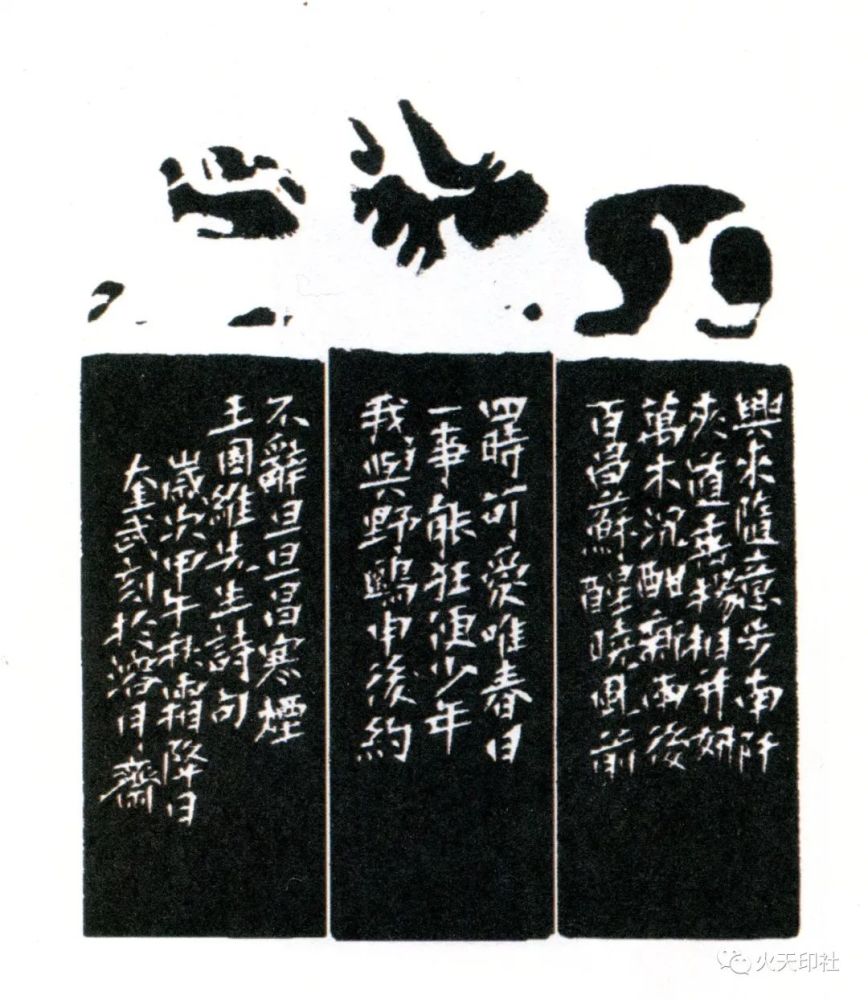 興來隨意步南阡
夾道垂楊相并妍
萬木沉酣新雨後
百昌蘇醒曉風前
四時可愛唯春日
一事能狂便少年
我與野鷗申後約
不辭旦旦冒寒煙
王國維先生詩句
歲次甲午秋霜降日
奎武刻於溶月齋
火天印社